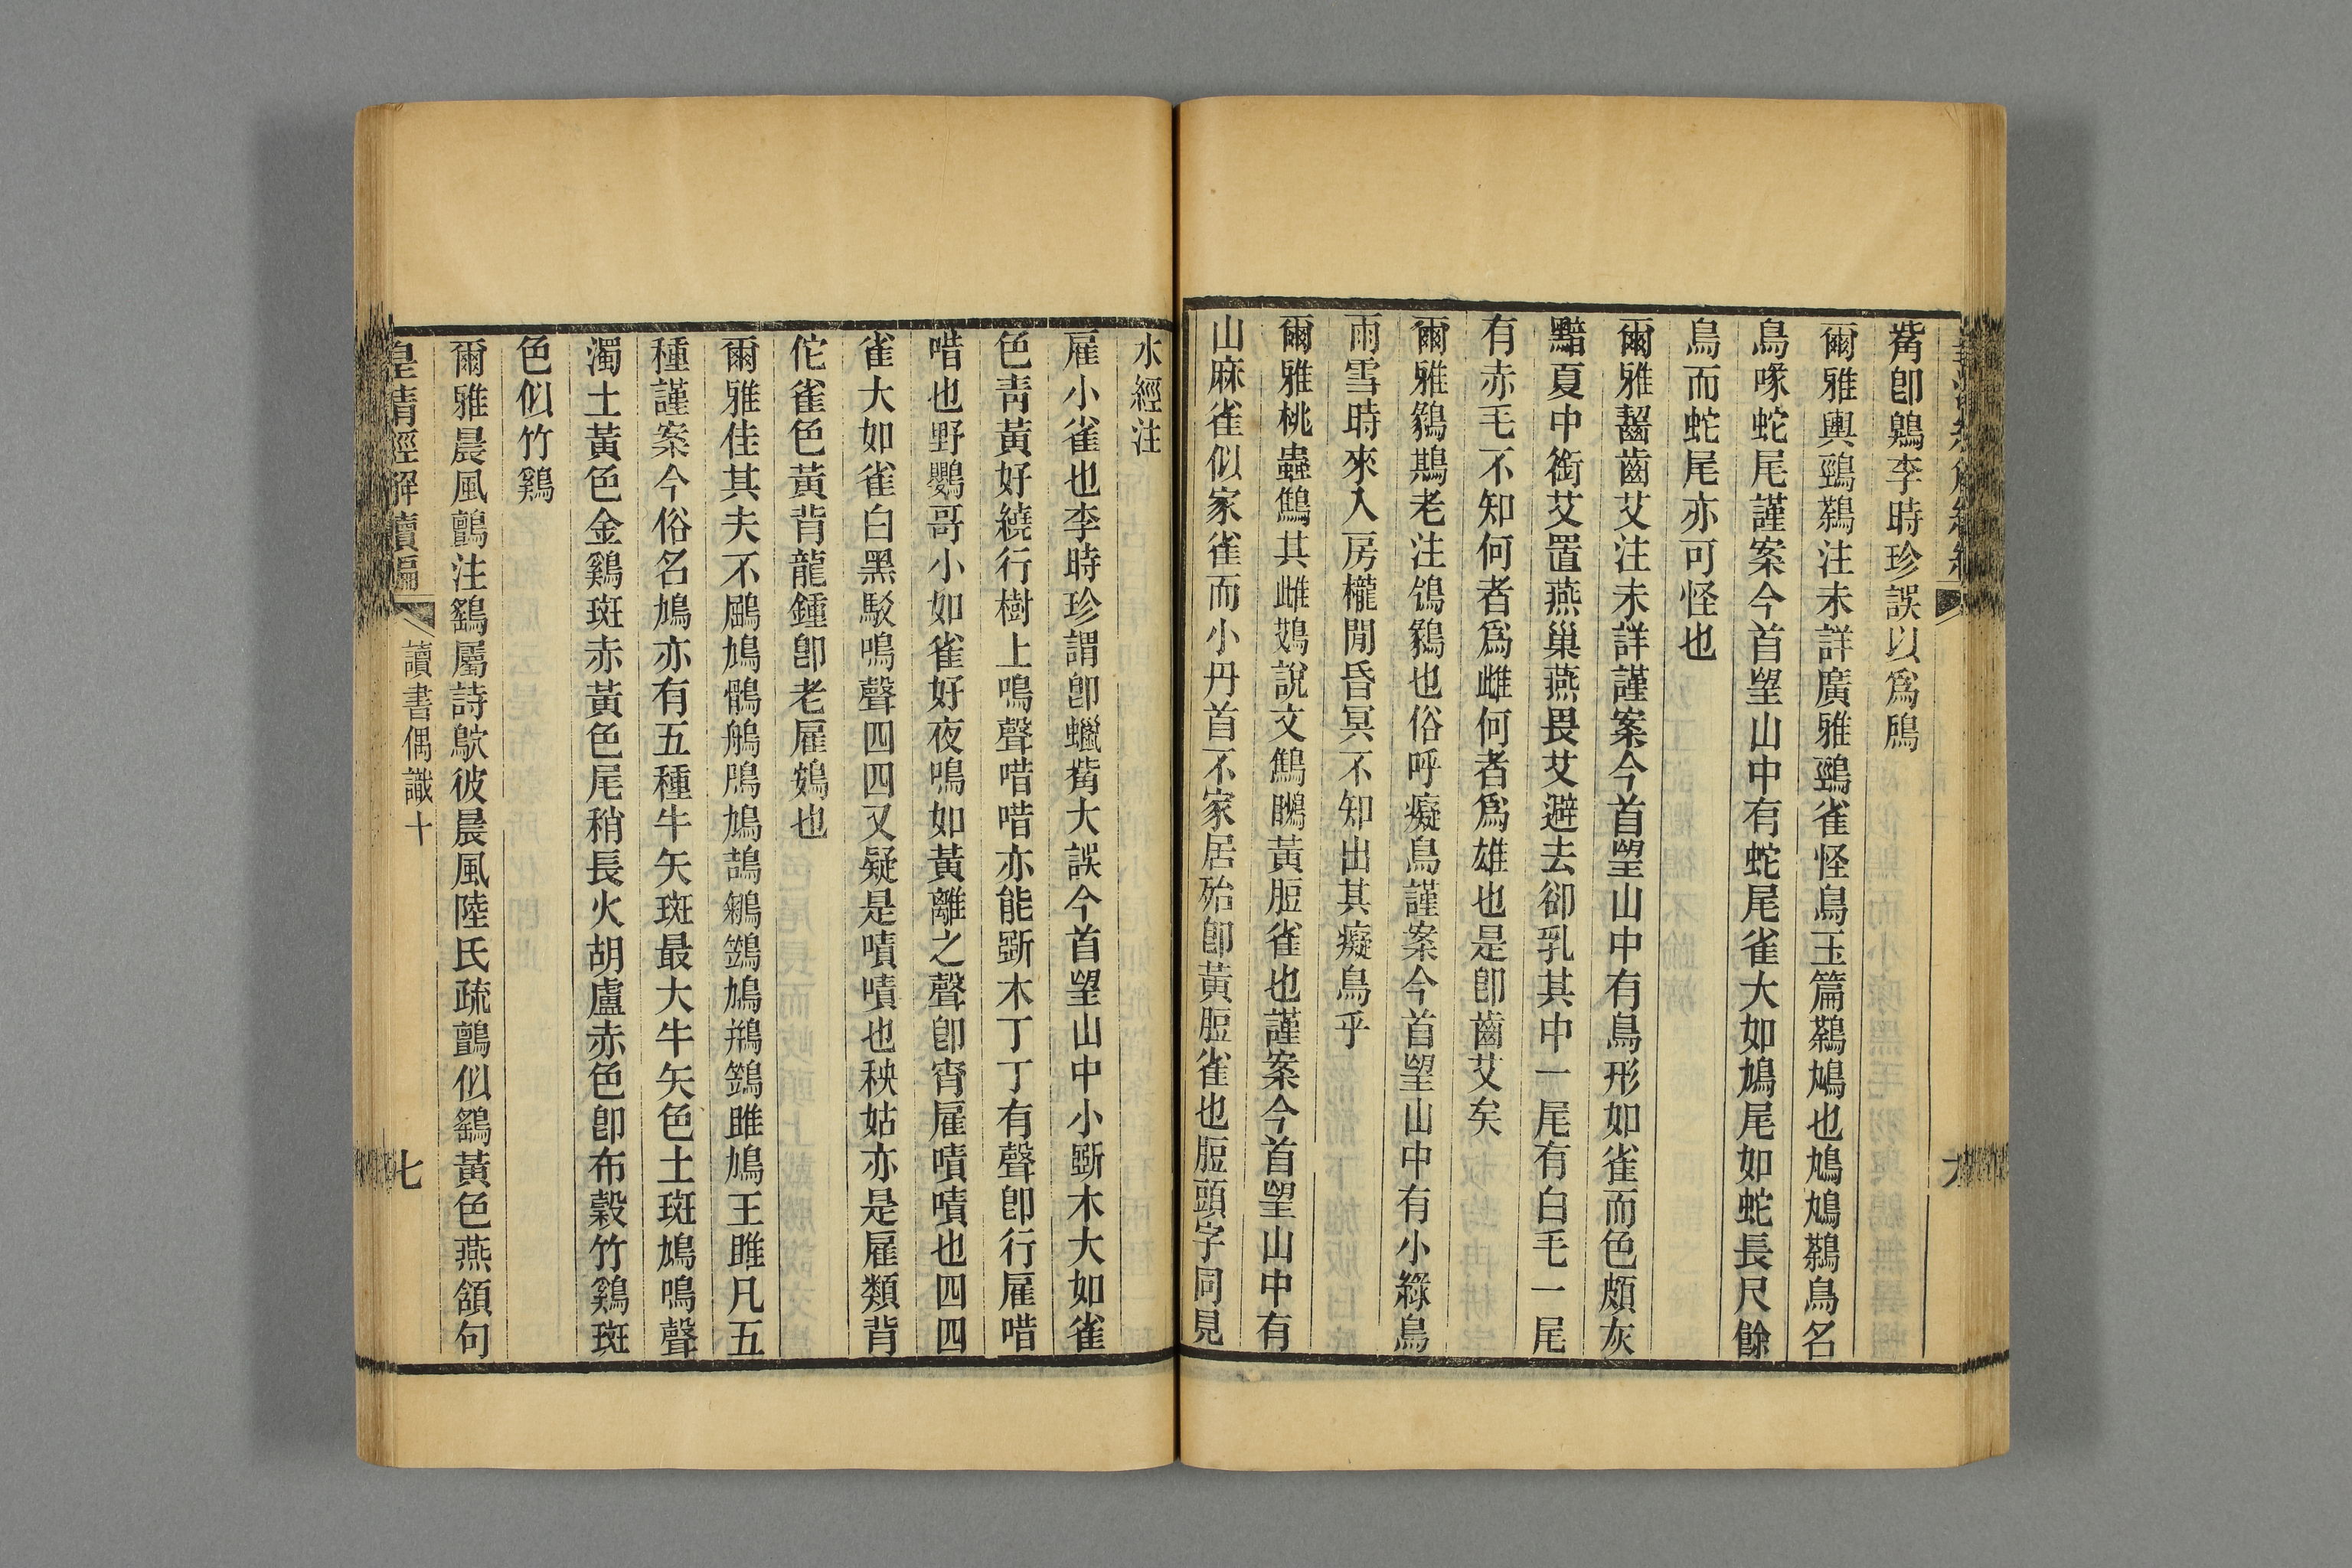 觜卽鷃李時珍誤以爲鳸
爾雅輿鵛鷋注未詳廣雅鵛雀怪鳥玉篇鷋鳩也鳩鳩鷋鳥名
鳥喙蛇尾謹案今首望山中有蛇尾雀大如鳩尾如蛇長尺餘
鳥而蛇尾亦可怪也
爾雅齧齒艾注未詳謹案今首望山中有鳥形如雀而色頗灰
黯夏中銜艾置燕巢燕畏艾避去卻乳其中一尾有白毛一尾
有赤毛不知何者爲雌何者爲雄也是卽齒艾矣
爾雅鶨鶀老注鴒鶨也俗呼癡鳥謹案今首望山中有小綠鳥
雨雪時來入房櫳閒昏冥不知出其癡鳥乎
爾雅桃蟲鷦其雌鴱說文鷦䳟黃脰雀也謹案今首望山中有
山麻雀似家雀而小丹首不家居殆卽黃脰雀也脰頭字同見
水經注
雇小雀也李時珍謂卽蠟觜大誤今首望山中小斲木大如雀
色靑黃好繞行樹上鳴聲唶唶亦能斲木丁丁有聲卽行雇唶
唶也野鸚哥小如雀好夜鳴如黃離之聲卽宵雇嘖嘖也四四
雀大如雀白黑駁鳴聲四四又疑是嘖嘖也秧姑亦是雇類背
佗雀色黃背龍鍾卽老雇鴳也
爾雅佳其夫不鶌鳩鶻鵃鳲鳩鴶鵴鷑鳩鵧鷑雎鳩王雎凡五
種謹案今俗名鳩亦有五種牛矢斑最大牛矢色土斑鳩鳴聲
濁土黃色金鷄斑赤黃色尾稍長火胡盧赤色卽布穀竹鷄斑
色似竹鷄
爾雅晨風鸇注鷂屬詩鴥彼晨風陸氏疏鸇似鷂黃色燕頷句
皇清經解續編
讀書偶識十
七